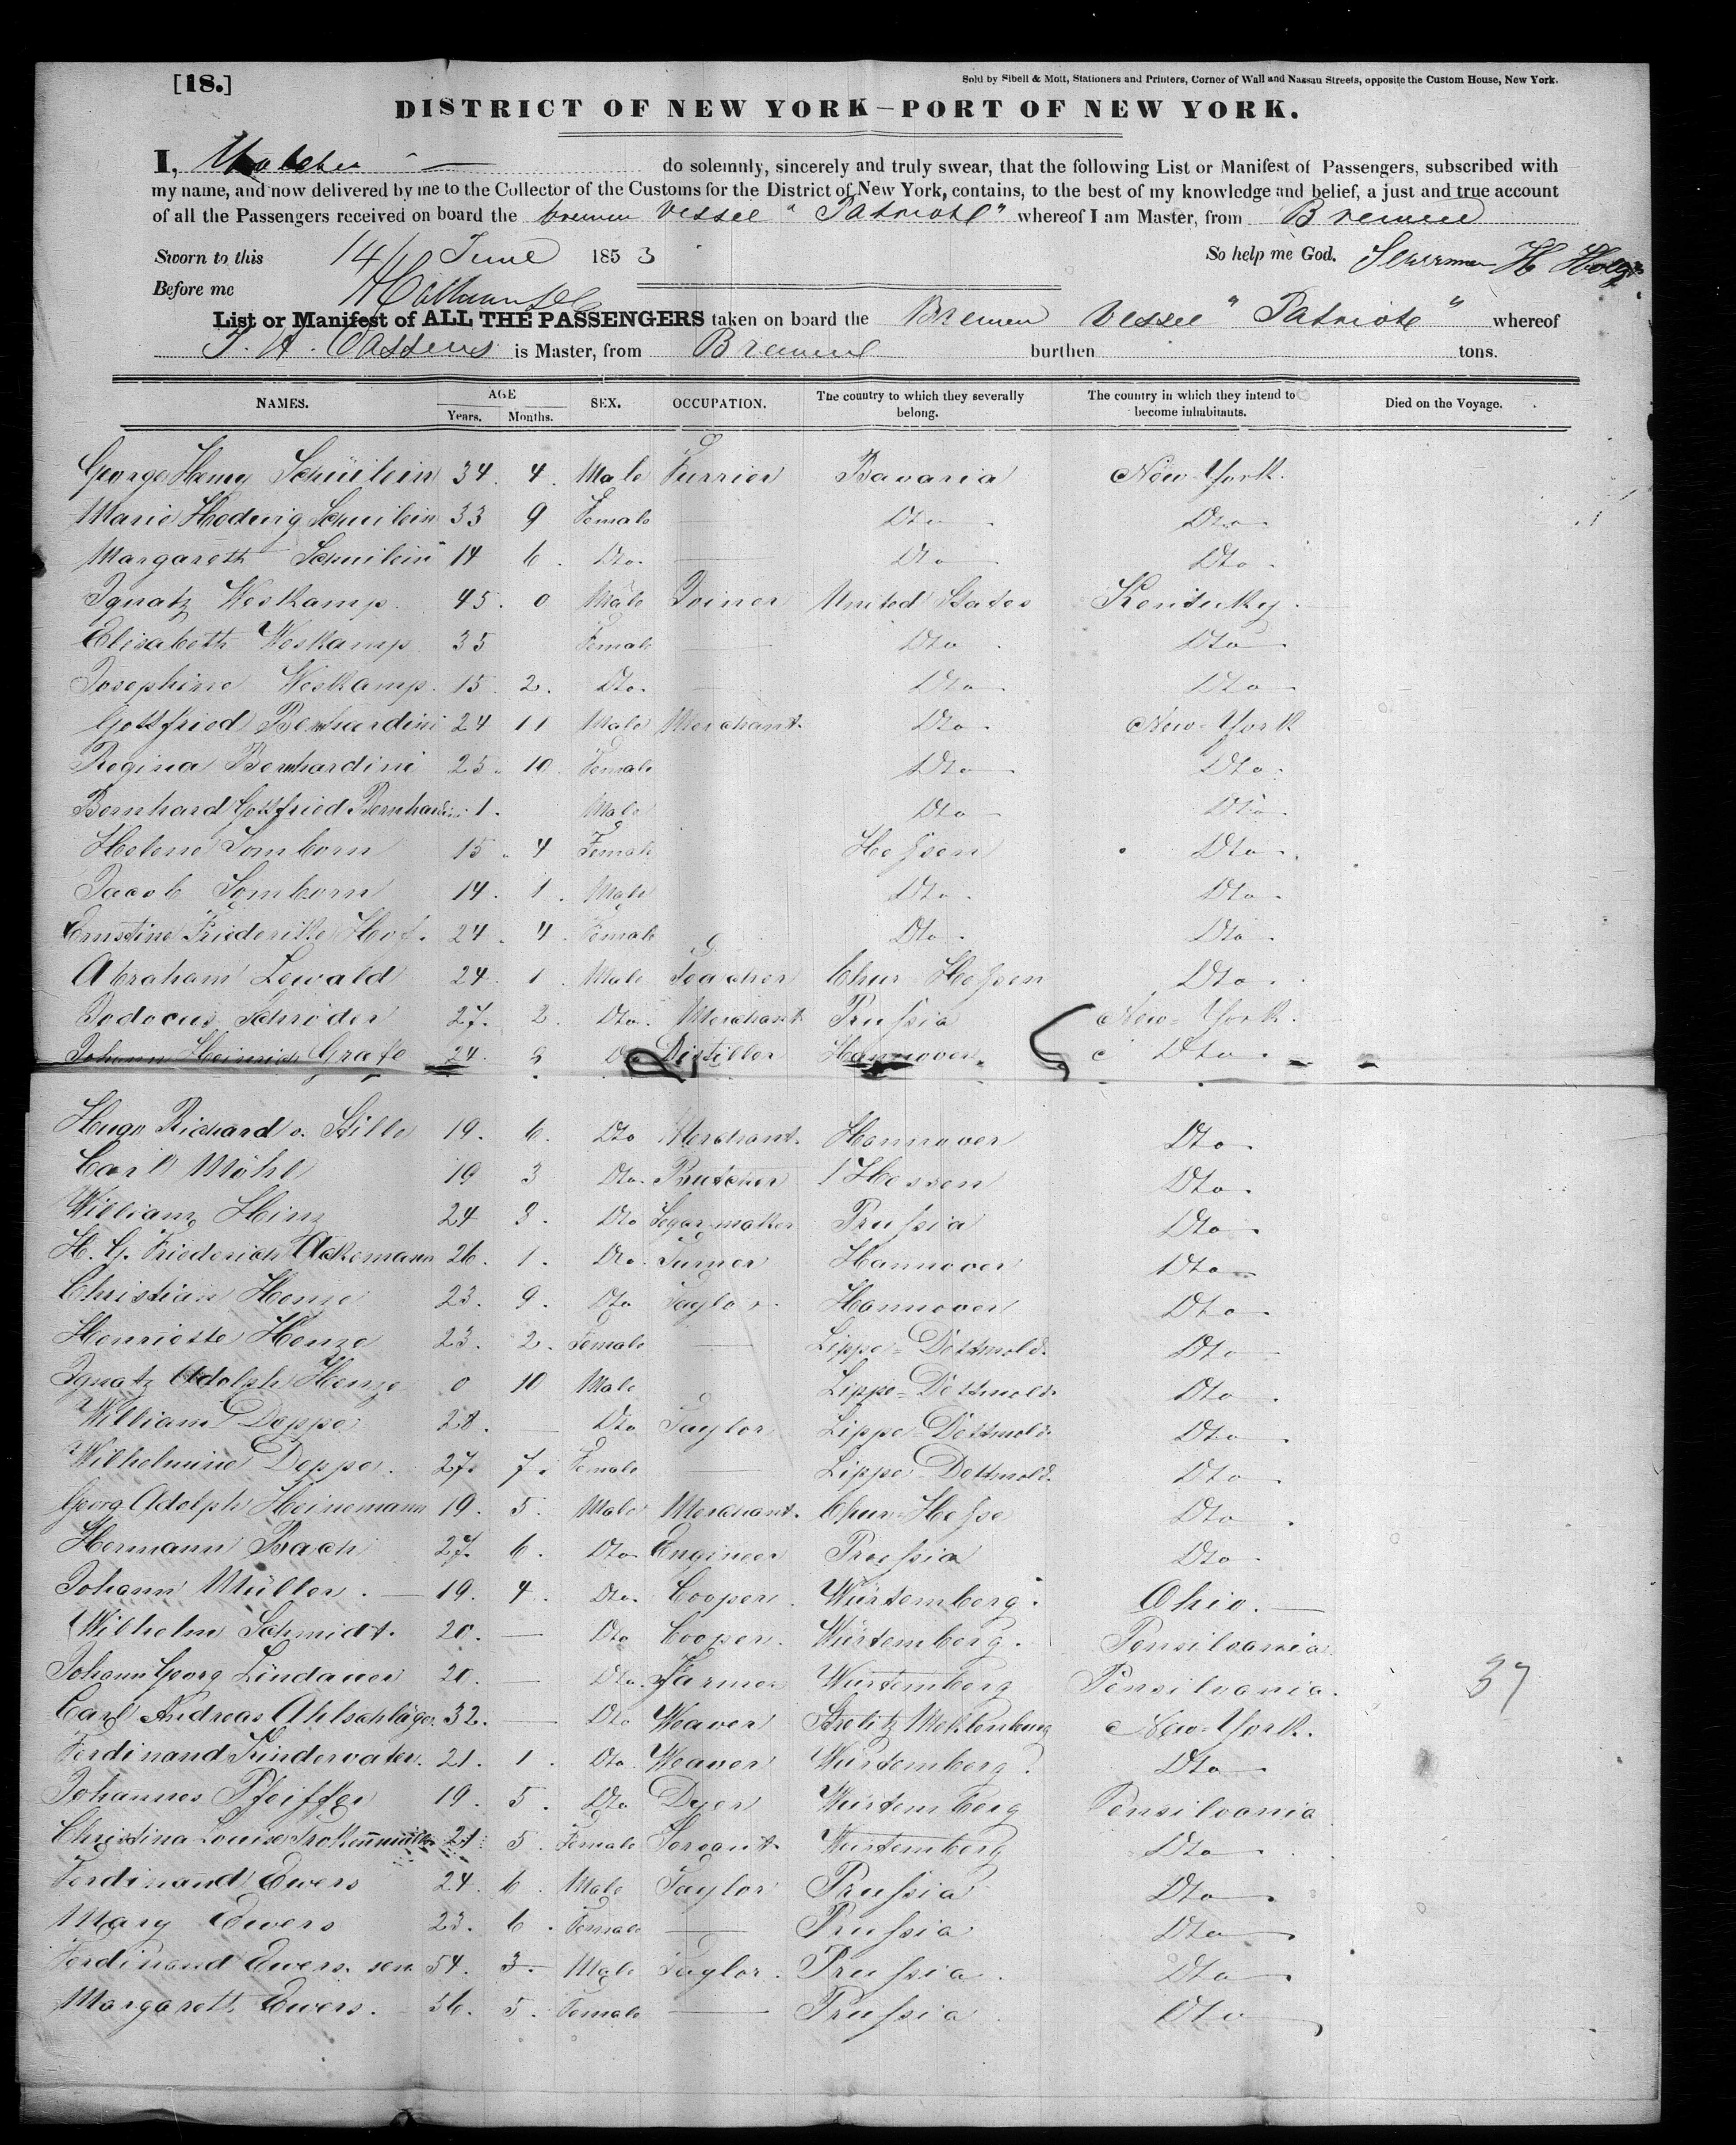 [18.]
Sold by Sibell & Mott, Stationers and Printers, Corner of Wall and Nassau Streets, opposite the Custom House, New York.
DISTRICT OF NEW YORK—PORT OF NEW YORK.
I, do solemnly, sincerely and truly swear, that the following List or Manifest of Passengers, subscribed with
my name, and now delivered by me to the Collector of the Customs for the District of New York, contains, to the best of my knowledge and belief, a just and true account
of all the Passengers received on board the bremen vessel "Patriote" whereof I am Master, from Bremen
Sworn to this 14 June 1853 So help me God. H
Before me
List or Manifest of ALL THE PASSENGERS taken on board the Bremen vessel "Patriote" whereof
is Master, from Bremen burthen tons.
NAMES. AGE Years. Months. SEX. OCCUPATION. The country to which they severally belong. The country in which they intend to become inhabitants. Died on the Voyage.
George Henry Schüilein 34. 4. Male Furrier Bavaria New-York.
Marie Hedwig Schuilein 33 9 Female — Dto Dto
Margareth Schuilein 14 6. Dto. — Dto Dto
Ignatz Weskamp 45. 0 Male Joiner United States Kentukey.
Elisabeth Weskamp 35 Female — Dto Dto
Josephine Weskamp. 15. 2. Dto. — Dto Dto
Gottfried Bernhardini 24 11 Male Merchant. Dto. New-York
Regina Bernhardini 25. 10. Female Dto Dto.
Bernhard Gottfried Bernhardini 1. Male Dto Dto.
Helene Somborn 15. 4 Female Hessen Dto.
Jacob Somborn 14. 1. Male Dto. Dto.
Ernstine Friederike Hof. 24. 4. Female Dto. Dto.
Abraham Lewald 24. 1. Male Teacher Chur Hessen Dto.
Jodocus Schröder 27. 2. Dto. Merchant Prussia New-York.
Johann Heinrich Grafe 24. Dto Distiller Hannover. Dto.
Hugo Richard v. Stille 19. 6. Dto Merchant. Hannover Dto.
Carl Möhl 19 3 Dto. Butcher Hessen Dto.
William Hinz 24 3. Dto Segar maker Prussia Dto.
H. G. Friederich Ackemann 26. 1. Dto. Turner Hannover Dto.
Christian Henze 23. 9. Dto Taylor. Hannover Dto.
Henriette Henze 23. 2. Female — Lippe-Dettmold. Dto
Ignatz Adolph Henze 0 10 Male Lippe-Dettmold. Dto.
William Deppe 28. — Dto Taylor Lippe-Dettmold. Dto.
Wilhelmine Deppe. 27. 7. Female — Lippe-Dettmold. Dto.
Georg Adolph Heinemann 19. 5. Male Merchant. Chur-Hesse Dto.
Hermann Bach 27. 6. Dto Engineer Prussia Dto.
Johann Müller. — 19. 4. Dto. Cooper. Würtemberg. Ohio. —
Wilhelm Schmidt. 20. — Dto Cooper. Würtemberg. Pensilvania.
Johann Georg Lindauer 20. — Dto. Farmer Würtemberg Pensilvania. 37
Carl Andreas Ahlschläger 32. — Dto Weaver Strelitz Meklenburg New-York.
Ferdinand Kindervater. 21. 1. Dto. Weaver Würtemberg. Dto
Johannes Pfeiffer 19. 5. Dto Dyer Würtemberg Pensilvania
Christina Louise 5. Female Servant. Würtemberg Dto.
Ferdinand Ewers 24. 6. Male Taylor Prussia Dto.
Mary Ewers 23. 6. Female — Prussia Dto
Ferdinand Ewers sen. 54. 3. Male Taylor. Prussia. Dto
Margareth Ewers. 56. 5. Female — Prussia. Dto